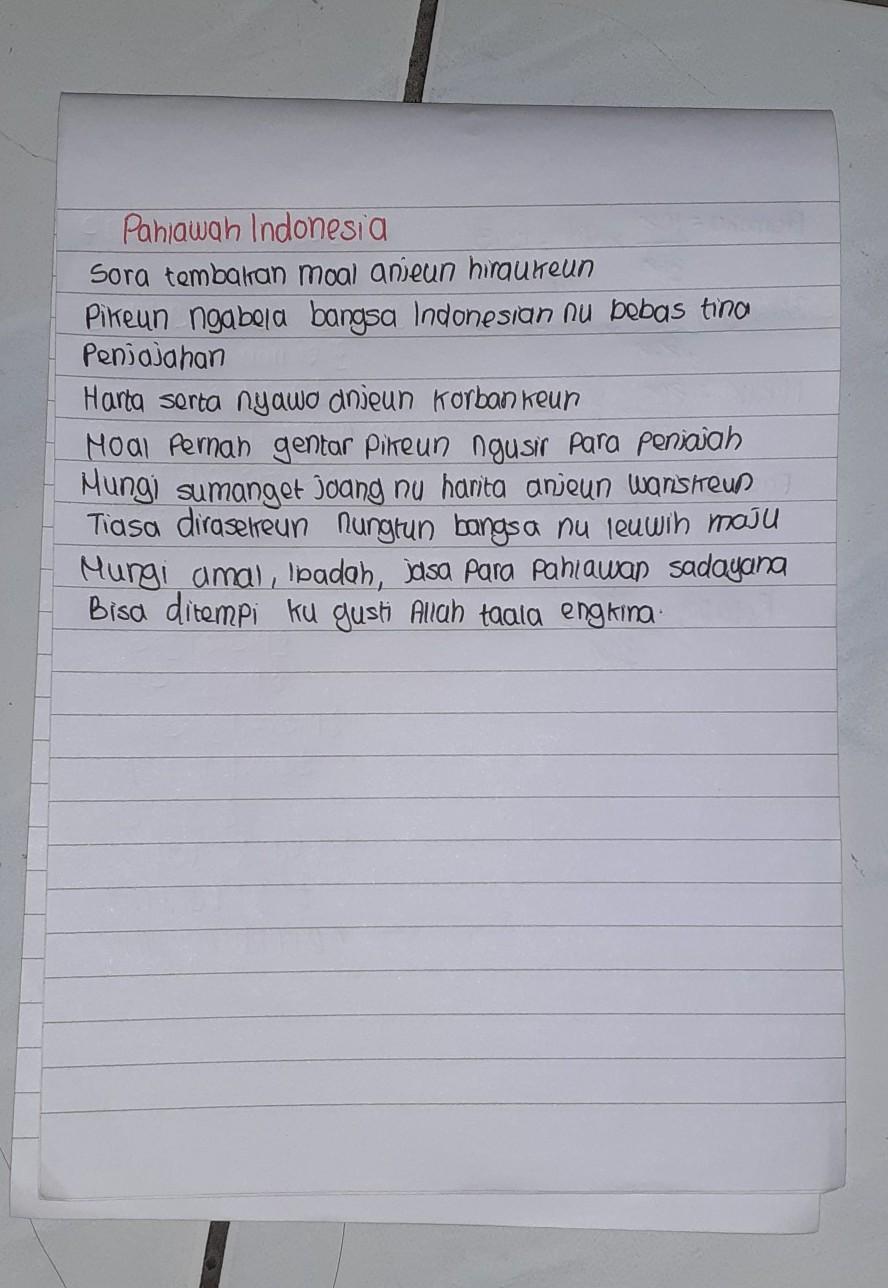 Pahlawan Indonesia
Sora tembakan moal anjeun hiraukeun
Pikeun ngabela bangsa Indonesian nu bebas tina
Penjajahan
Harta serta nyawa anjeun korbankeun
Moal Pernah gentar Pikeun ngusir Para penjajah
Mungi sumanget joang nu harita anjeun wariskeun
Tiasa diraseukeun nungtun bangsa nu leuwih maju
Mungi amal, Ibadah, jasa Para Pahlawan sadayana
Bisa ditempi ku gusti Allah taala engkina.